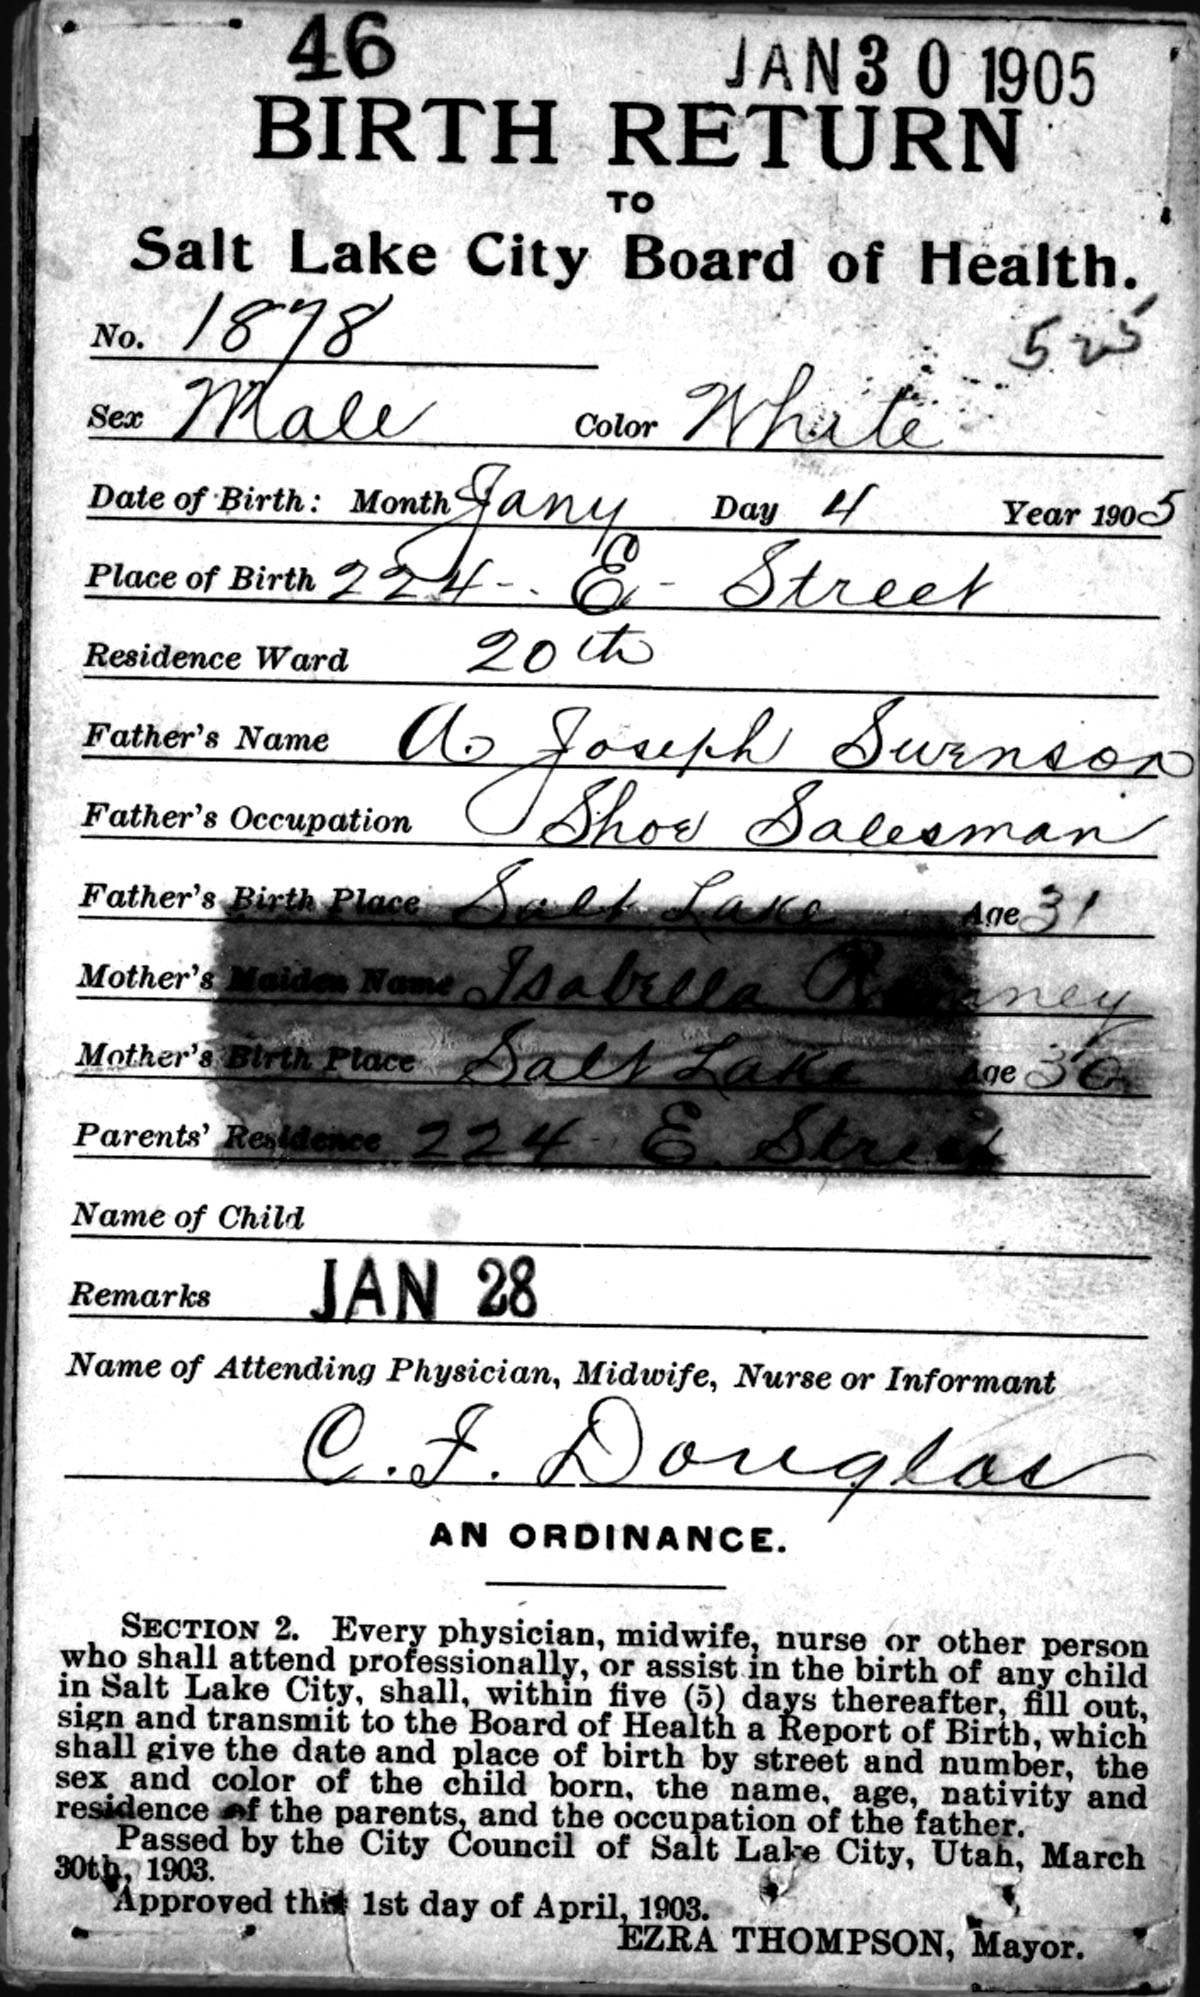 46 JAN 30 1905
BIRTH RETURN
TO
Salt Lake City Board of Health.
No. 1878 525
Sex Male Color White
Date of Birth: Month Jany Day 4 Year 1905
Place of Birth 224 - E - Street
Residence Ward 20th
Father's Name A. Joseph Swenson
Father's Occupation Shoe Salesman
Father's Birth Place Salt Lake Age 31
Mother's Maiden Name Isabella Romney
Mother's Birth Place Salt Lake Age 30
Parents' Residence 224 E Street
Name of Child
Remarks JAN 28
Name of Attending Physician, Midwife, Nurse or Informant
C. F. Douglas
AN ORDINANCE.
SECTION 2. Every physician, midwife, nurse or other person
who shall attend professionally, or assist in the birth of any child
in Salt Lake City, shall, within five (5) days thereafter, fill out,
sign and transmit to the Board of Health a Report of Birth, which
shall give the date and place of birth by street and number, the
sex and color of the child born, the name, age, nativity and
residence of the parents, and the occupation of the father.
Passed by the City Council of Salt Lake City, Utah, March
30th, 1903.
Approved this 1st day of April, 1903.
EZRA THOMPSON, Mayor.